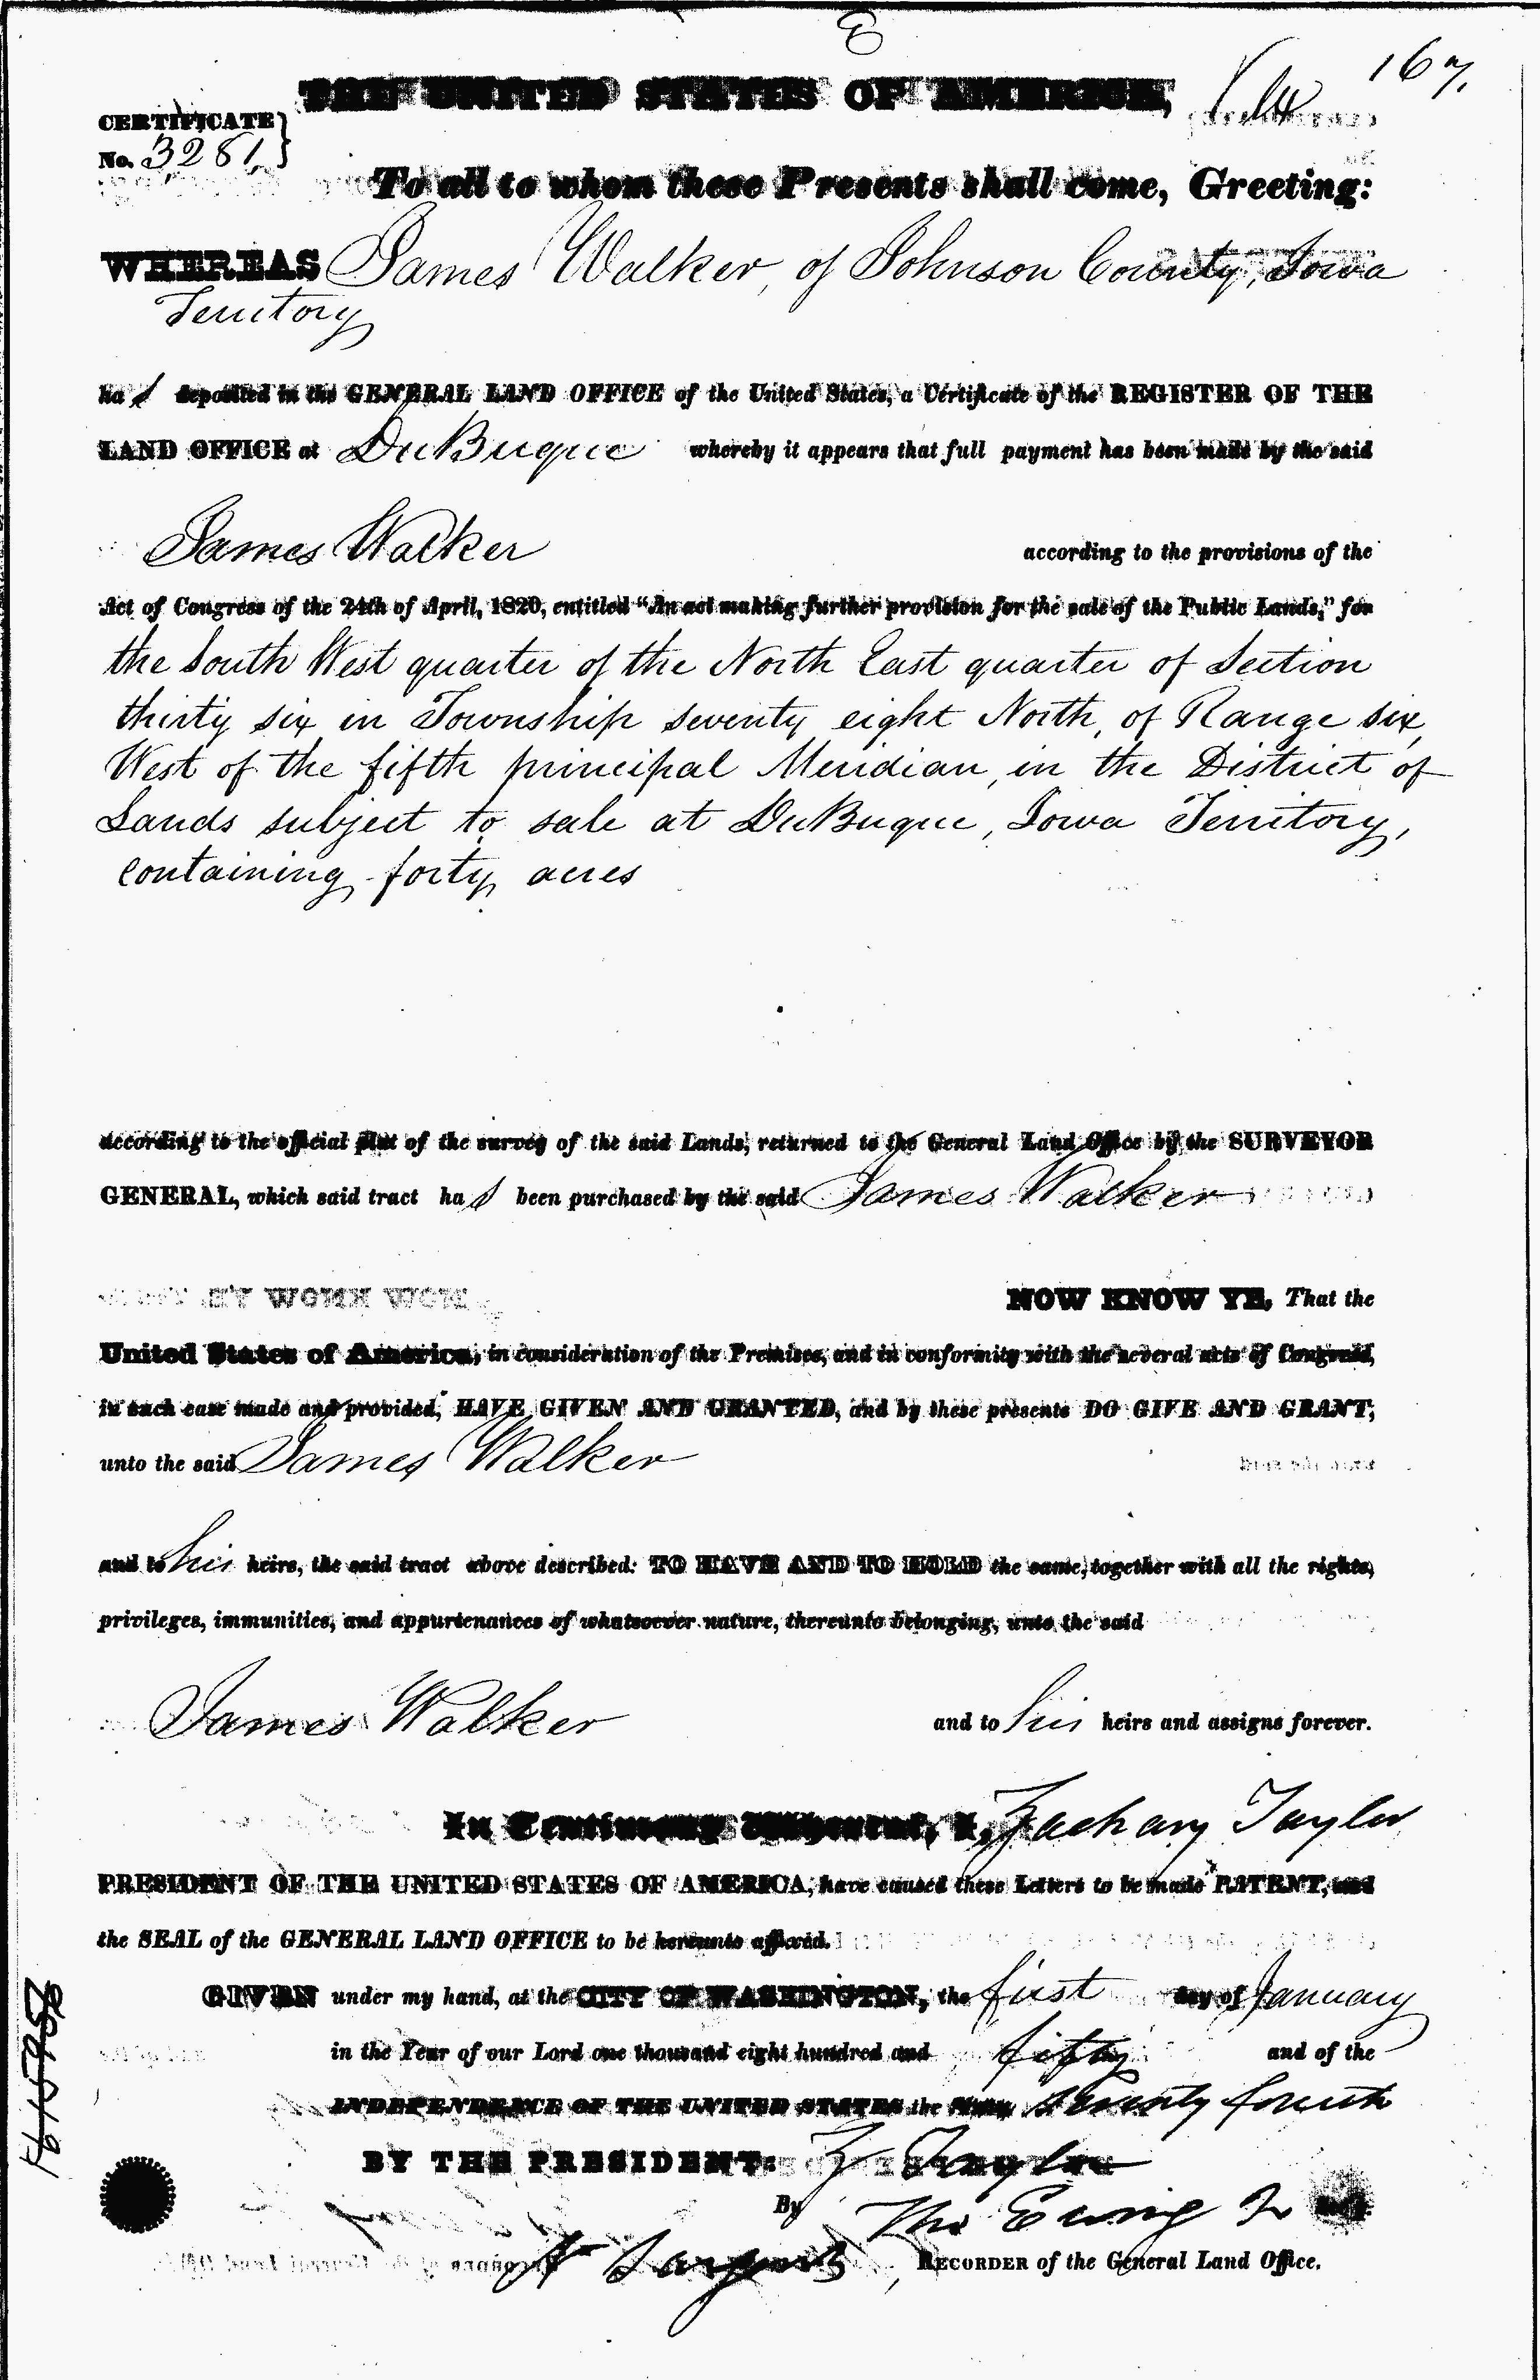 167.
THE UNITED STATES OF AMERICA,
CERTIFICATE
No. 3281
To all to whom these Presents shall come, Greeting:
WHEREAS James Walker, of Johnson County, Iowa
Territory
ha s deposited in the GENERAL LAND OFFICE of the United States, a Certificate of the REGISTER OF THE
LAND OFFICE at DuBuque whereby it appears that full payment has been made by the said
James Walker according to the provisions of the
Act of Congress of the 24th of April, 1820, entitled "An act making further provision for the sale of the Public Lands," for
the South West quarter of the North East quarter of Section
thirty six in Township seventy eight North, of Range six,
West of the fifth principal Meridian, in the District of
Lands subject to sale at DuBuque, Iowa Territory,
containing forty acres
according to the official plat of the survey of the said Lands, returned to the General Land Office by the SURVEYOR
GENERAL, which said tract ha s been purchased by the said James Walker
NOW KNOW YE, That the
United States of America, in consideration of the Premises, and in conformity with the several acts of Congress,
in such case made and provided, HAVE GIVEN AND GRANTED, and by these presents DO GIVE AND GRANT,
unto the said James Walker
and to his heirs, the said tract above described: TO HAVE AND TO HOLD the same, together with all the rights,
privileges, immunities, and appurtenances of whatsoever nature, thereunto belonging, unto the said
James Walker and to his heirs and assigns forever.
In Testimony Whereof, I, Zachary Taylor
PRESIDENT OF THE UNITED STATES OF AMERICA, have caused these Letters to be made PATENT, and
the SEAL of the GENERAL LAND OFFICE to be hereunto affixed.
GIVEN under my hand, at the CITY OF WASHINGTON, the first day of January
in the Year of our Lord one thousand eight hundred and fifty and of the
INDEPENDENCE OF THE UNITED STATES the Seventy fourth
BY THE PRESIDENT: Z Taylor
By Tho Ewing Jr
RECORDER of the General Land Office.